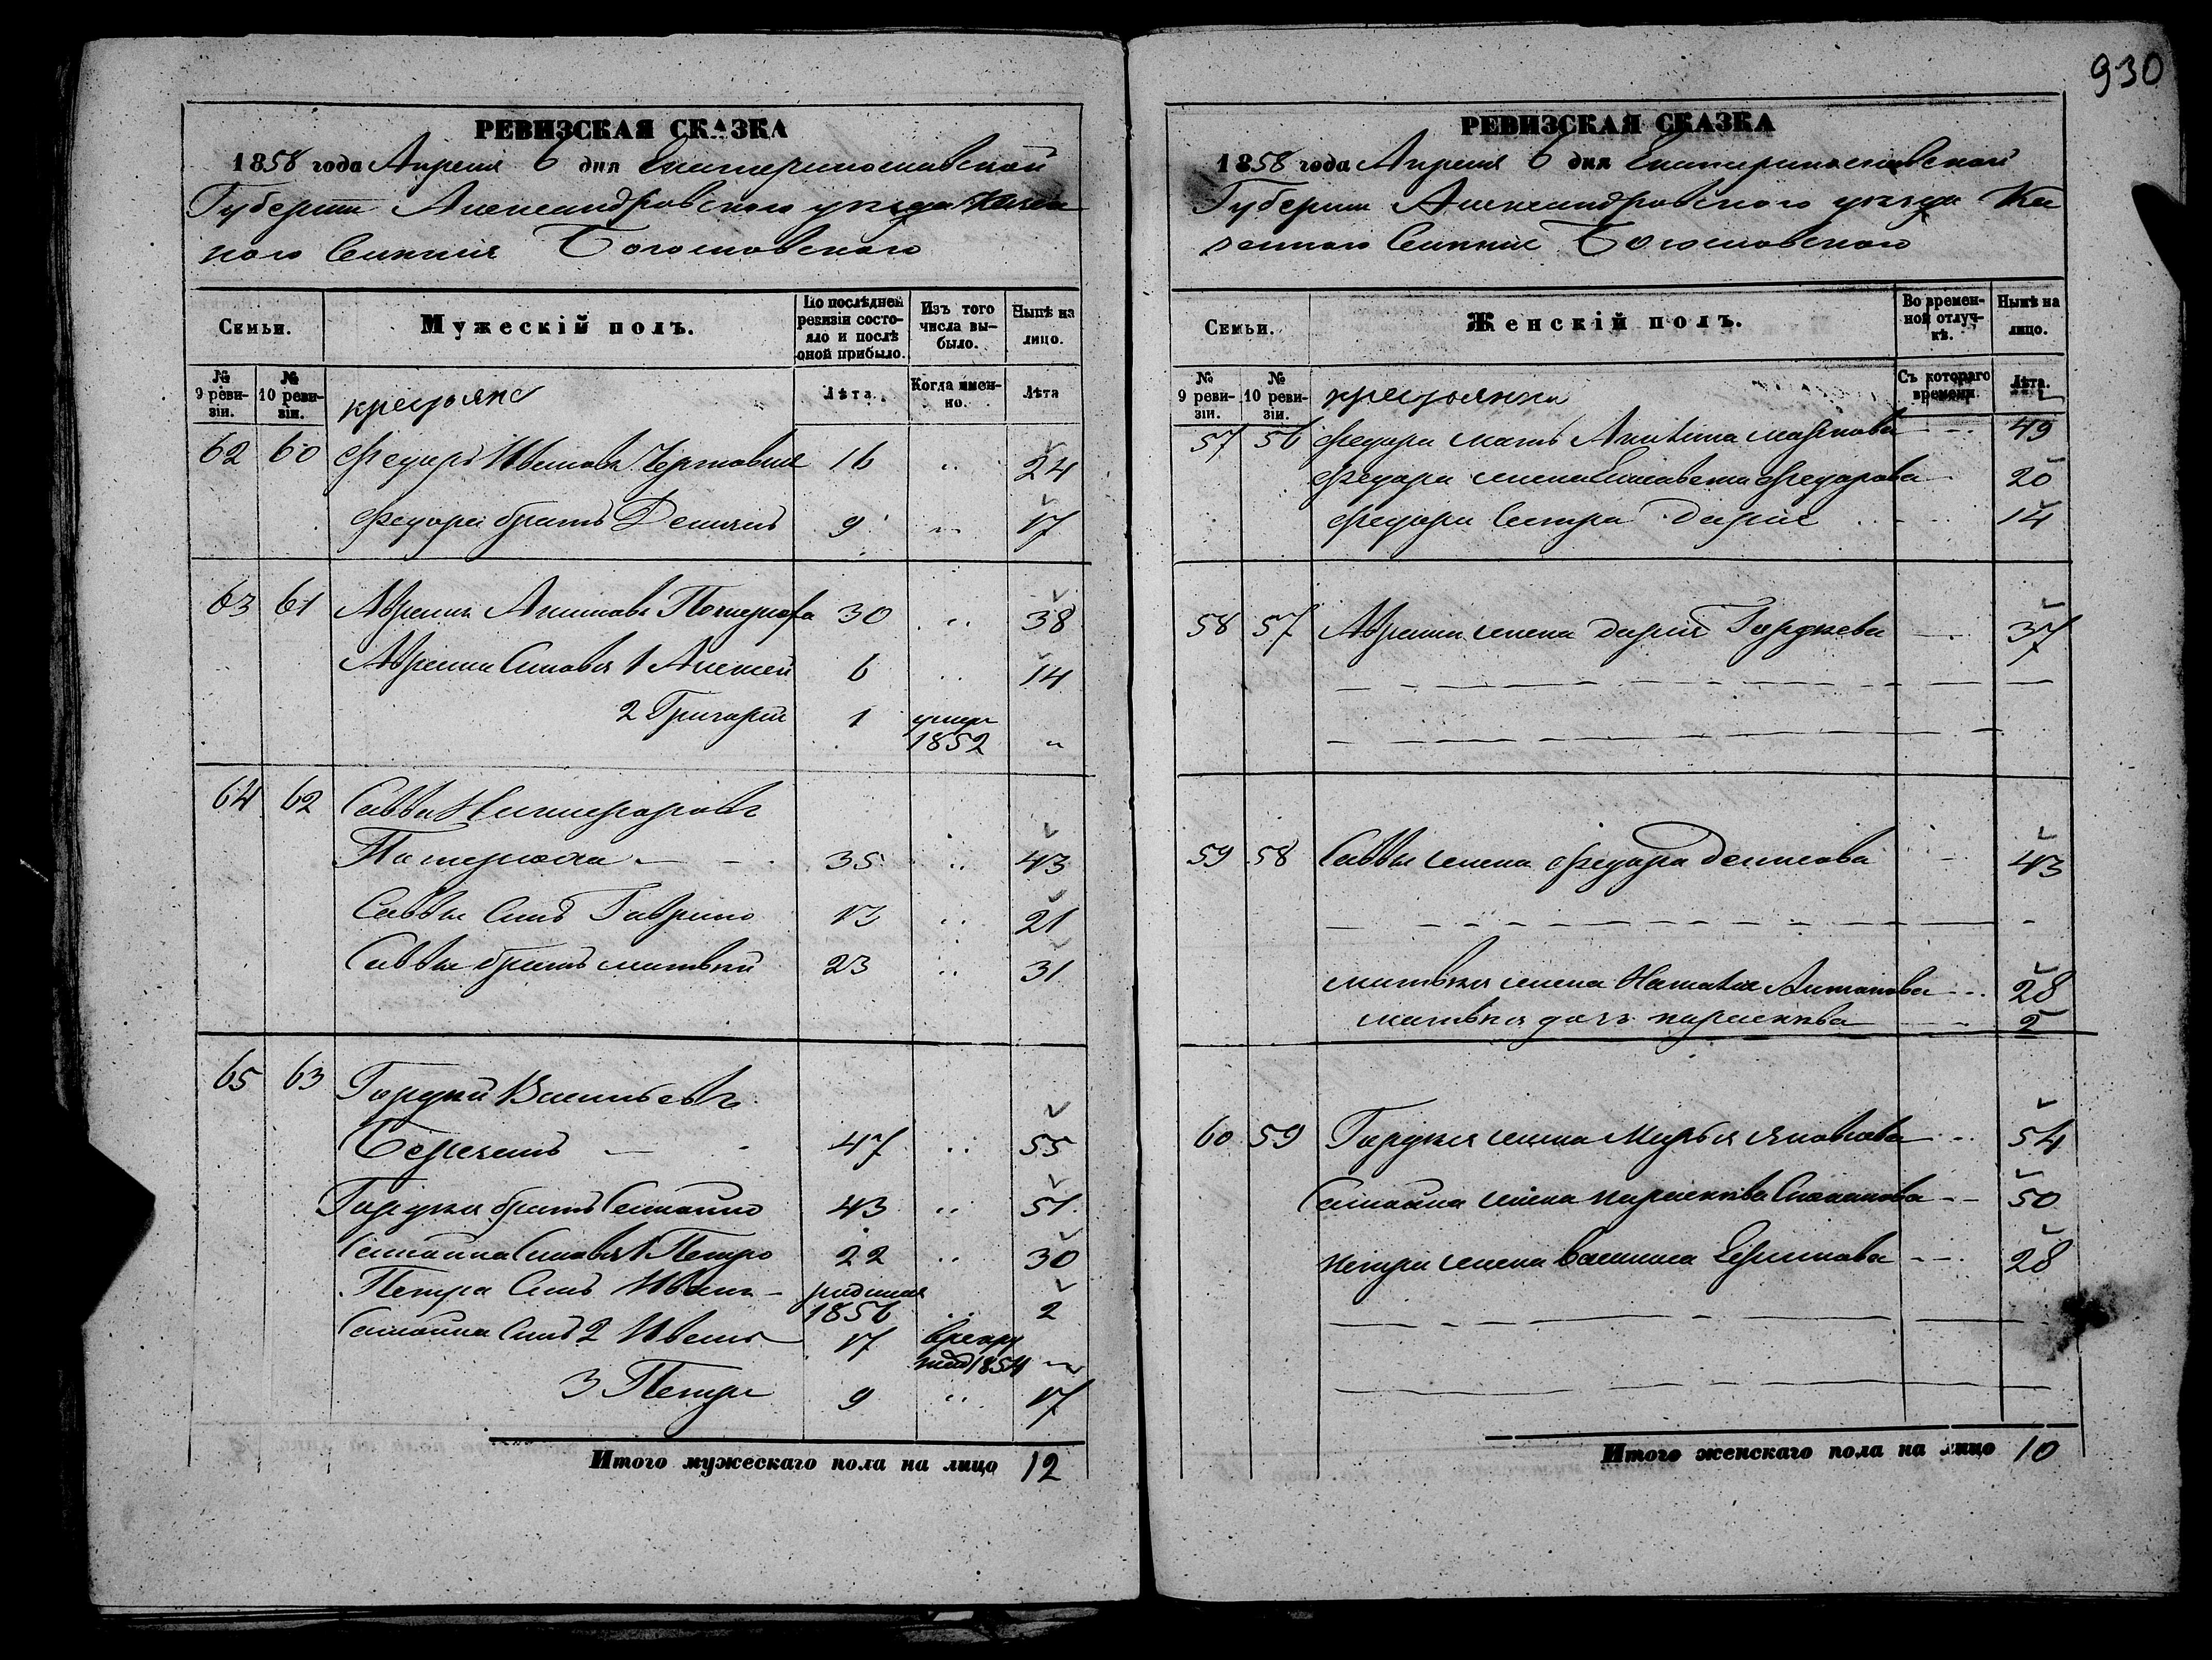 930
РЕВИЗСКАЯ СКАЗКА
1858 года Апреля 6 дня Екатеринославской
Губернии Александровского уезда Казен
ного Селения Богословского
Семьи.
Мужескій полъ.
По послѣдней ревизіи состояло и послѣ оной прибыло.
Изъ того числа выбыло.
Нынѣ на лицо.
№ 9 ревизіи.
№ 10 ревизіи.
крестьяне
Лѣта.
Когда именно.
Лѣта
62 60 Федоръ Ивановъ 16 " 24
Федора братъ Демянъ 9 " 17
63 61 Абрамъ Акимовъ 30 " 38
Абрама Сыновья 1 Алексей 6 " 14
2 Григорій 1 умеръ 1852 "
64 62 Савва Никифоровъ
35 " 43
Саввы Сынъ Гаврило 13 " 21
Саввы братъ матвѣй 23 " 31
65 63 Гордѣй Васильевъ
47 " 55
Гордѣя братъ Самойло 43 " 51
Самойла Сыновья 1 Петро 22 " 30
Петра Сынъ Иванъ родился 1856 " 2
Самойла Сынъ 2 Иванъ 17 в рекру 1854 "
3 Петръ 9 " 17
Итого мужескаго пола на лицо 12
РЕВИЗСКАЯ СКАЗКА
1858 года Апреля 6 дня Екатеринославской
Губернии Александровского уезда Ка
зенного Селения Богословского
Семьи.
Женскій полъ.
Во временной отлучкѣ.
Нынѣ на лицо.
№ 9 ревизіи.
№ 10 ревизіи.
крестьянки
Съ котораго времени.
Лѣта.
57 56 Федора мать 49
Федора жена Елисавета Федорова 20
Федора Сестра Дарья 14
58 57 Абрама жена Дарья Гордѣева 37
59 58 Саввы жена Федора Денисова 43
матвѣя жена Наталія Антонова 28
матвѣя дочь парасковя 2
60 59 Гордѣя жена Марья Яковлева 54
Самойла жена парасковя Степанова 50
петра жена Василиса 28
Итого женскаго пола на лицо 10